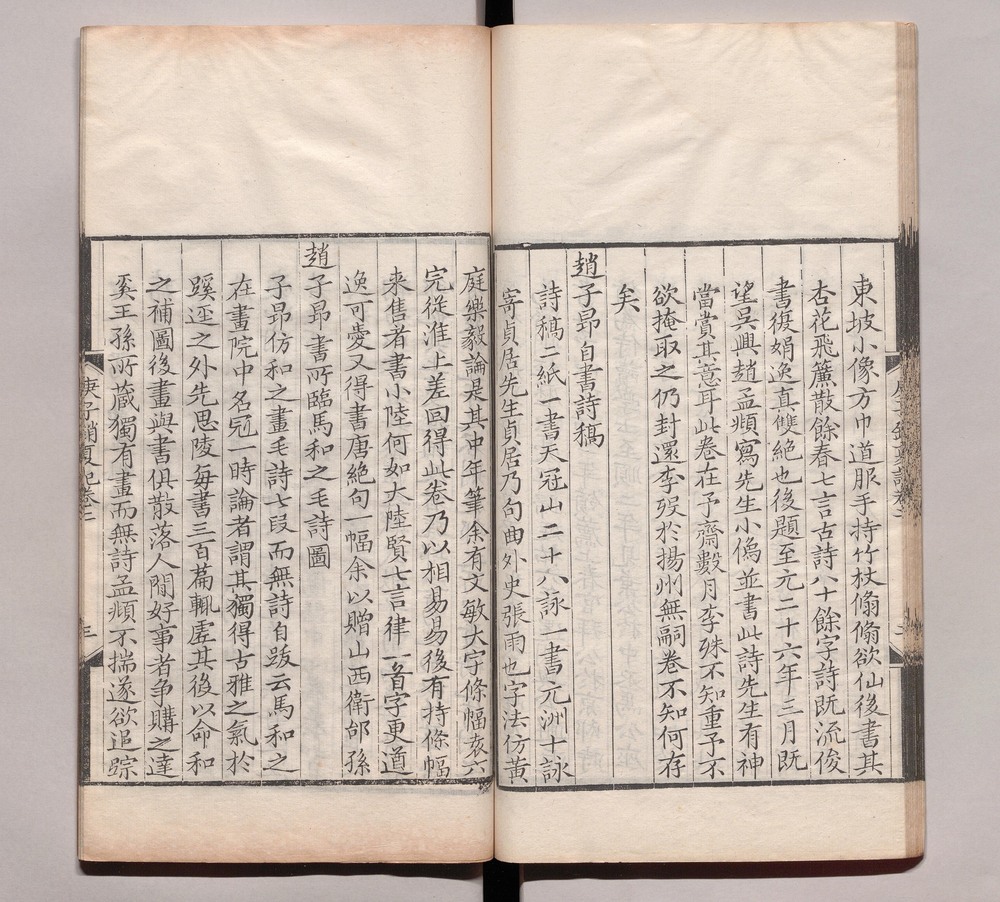 東坡小像方巾道服手持竹杖翛翛欲仙後書其
杏花飛簾散餘春七言古詩八十餘字詩既流俊
書復娟逸真雙絶也後題至元二十六年三月既
望吳興趙孟頫寫先生小像並書此詩先生有神
當賞其意耳此卷在予齋數月李殊不知重予不
欲掩取之仍封還李歿於揚州無嗣卷不知何存
矣
趙子昻自書詩稿
詩稿二紙一書天冠山二十八詠一書元洲十詠
寄貞居先生貞居乃句曲外史張雨也字法仿黃
庭樂毅論是其中年筆余有文敏大字條幅袁六
完從淮上差回得此卷乃以相易易後有持條幅
来售者書小陸何如大陸賢七言律一首字更遒
逸可愛又得書唐絶句一幅余以贈山西衛邰孫
趙子昻書所臨馬和之毛詩圖
子昻仿和之畫毛詩七段而無詩自跋云馬和之
在畫院中名冠一時論者謂其獨得古雅之氣於
蹊逕之外先思陵每書三百篇輒虛其後以命和
之補圖後畫與書俱散落人閒好事者争購之達
奚王孫所藏獨有畫而無詩孟頫不揣遂欲追踪
庚子銷夏記卷二
三